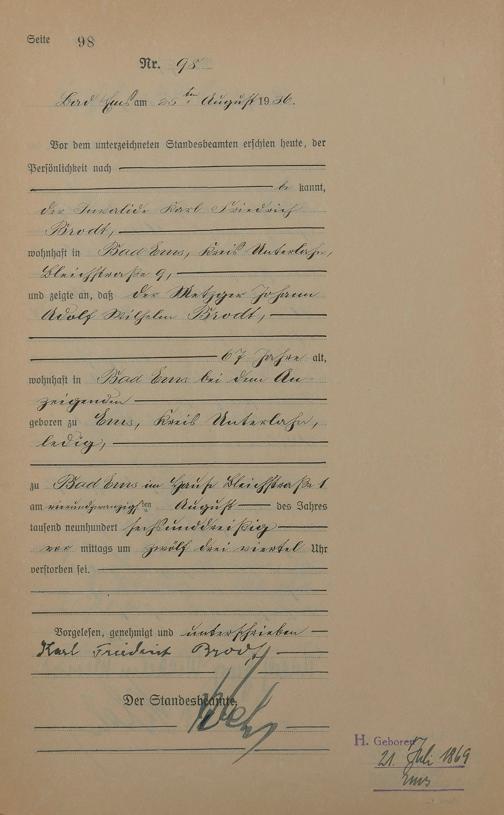 Seite 98
Nr. 98
Bad Ems am 25ten August 1936.
Vor dem unterzeichneten Standesbeamten erschien heute, der
Persönlichkeit nach
be kannt,
der Invalide Karl Friedrich
Brodt,
wohnhaft in Bad Ems, Kreis Unterlahn,
Bleichstraße 9,
und zeigte an, daß der Metzger Johann
Adolf Wilhelm Brodt,
67 Jahre alt,
wohnhaft in Bad Ems bei dem An-
zeigenden
geboren zu Ems, Kreis Unterlahn,
ledig,
zu Bad Ems im Hause Bleichstraße
am vierundzwanzigsten August des Jahres
tausend neunhundert sechsunddreißig
vor mittags um zwölf drei viertel Uhr
verstorben sei.
Vorgelesen, genehmigt und unterschrieben
Karl Friedrich Brodt
Der Standesbeamte.
H. Geboren
21. Juli 1869
Ems